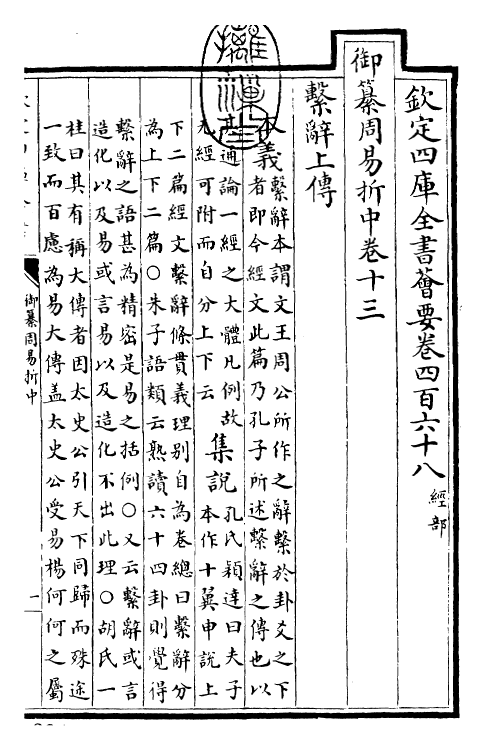 欽定四庫全書薈要卷四百六十八 經部
御纂周易折中卷十三
繫辭上傳
本義 繫辭本謂文王周公所作之辭繫於卦爻之下
者即今經文此篇乃孔子所述繫辭之傳也以
其通論一經之大體凡例故
无經可附而自分上下云
集說 孔氏穎達曰夫子
本作十翼申說上
下二篇經文繫辭條貫義理別自為卷總曰繫辭分
為上下二篇○朱子語類云熟讀六十四卦則覺得
繫辭之語甚為精密是易之括例○又云繫辭或言
造化以及易或言易以及造化不出此理○胡氏一
桂曰其有稱大傳者因太史公引天下同歸而殊途
一致而百慮為易大傳盖太史公受易楊何何之屬
御纂周易折中
一